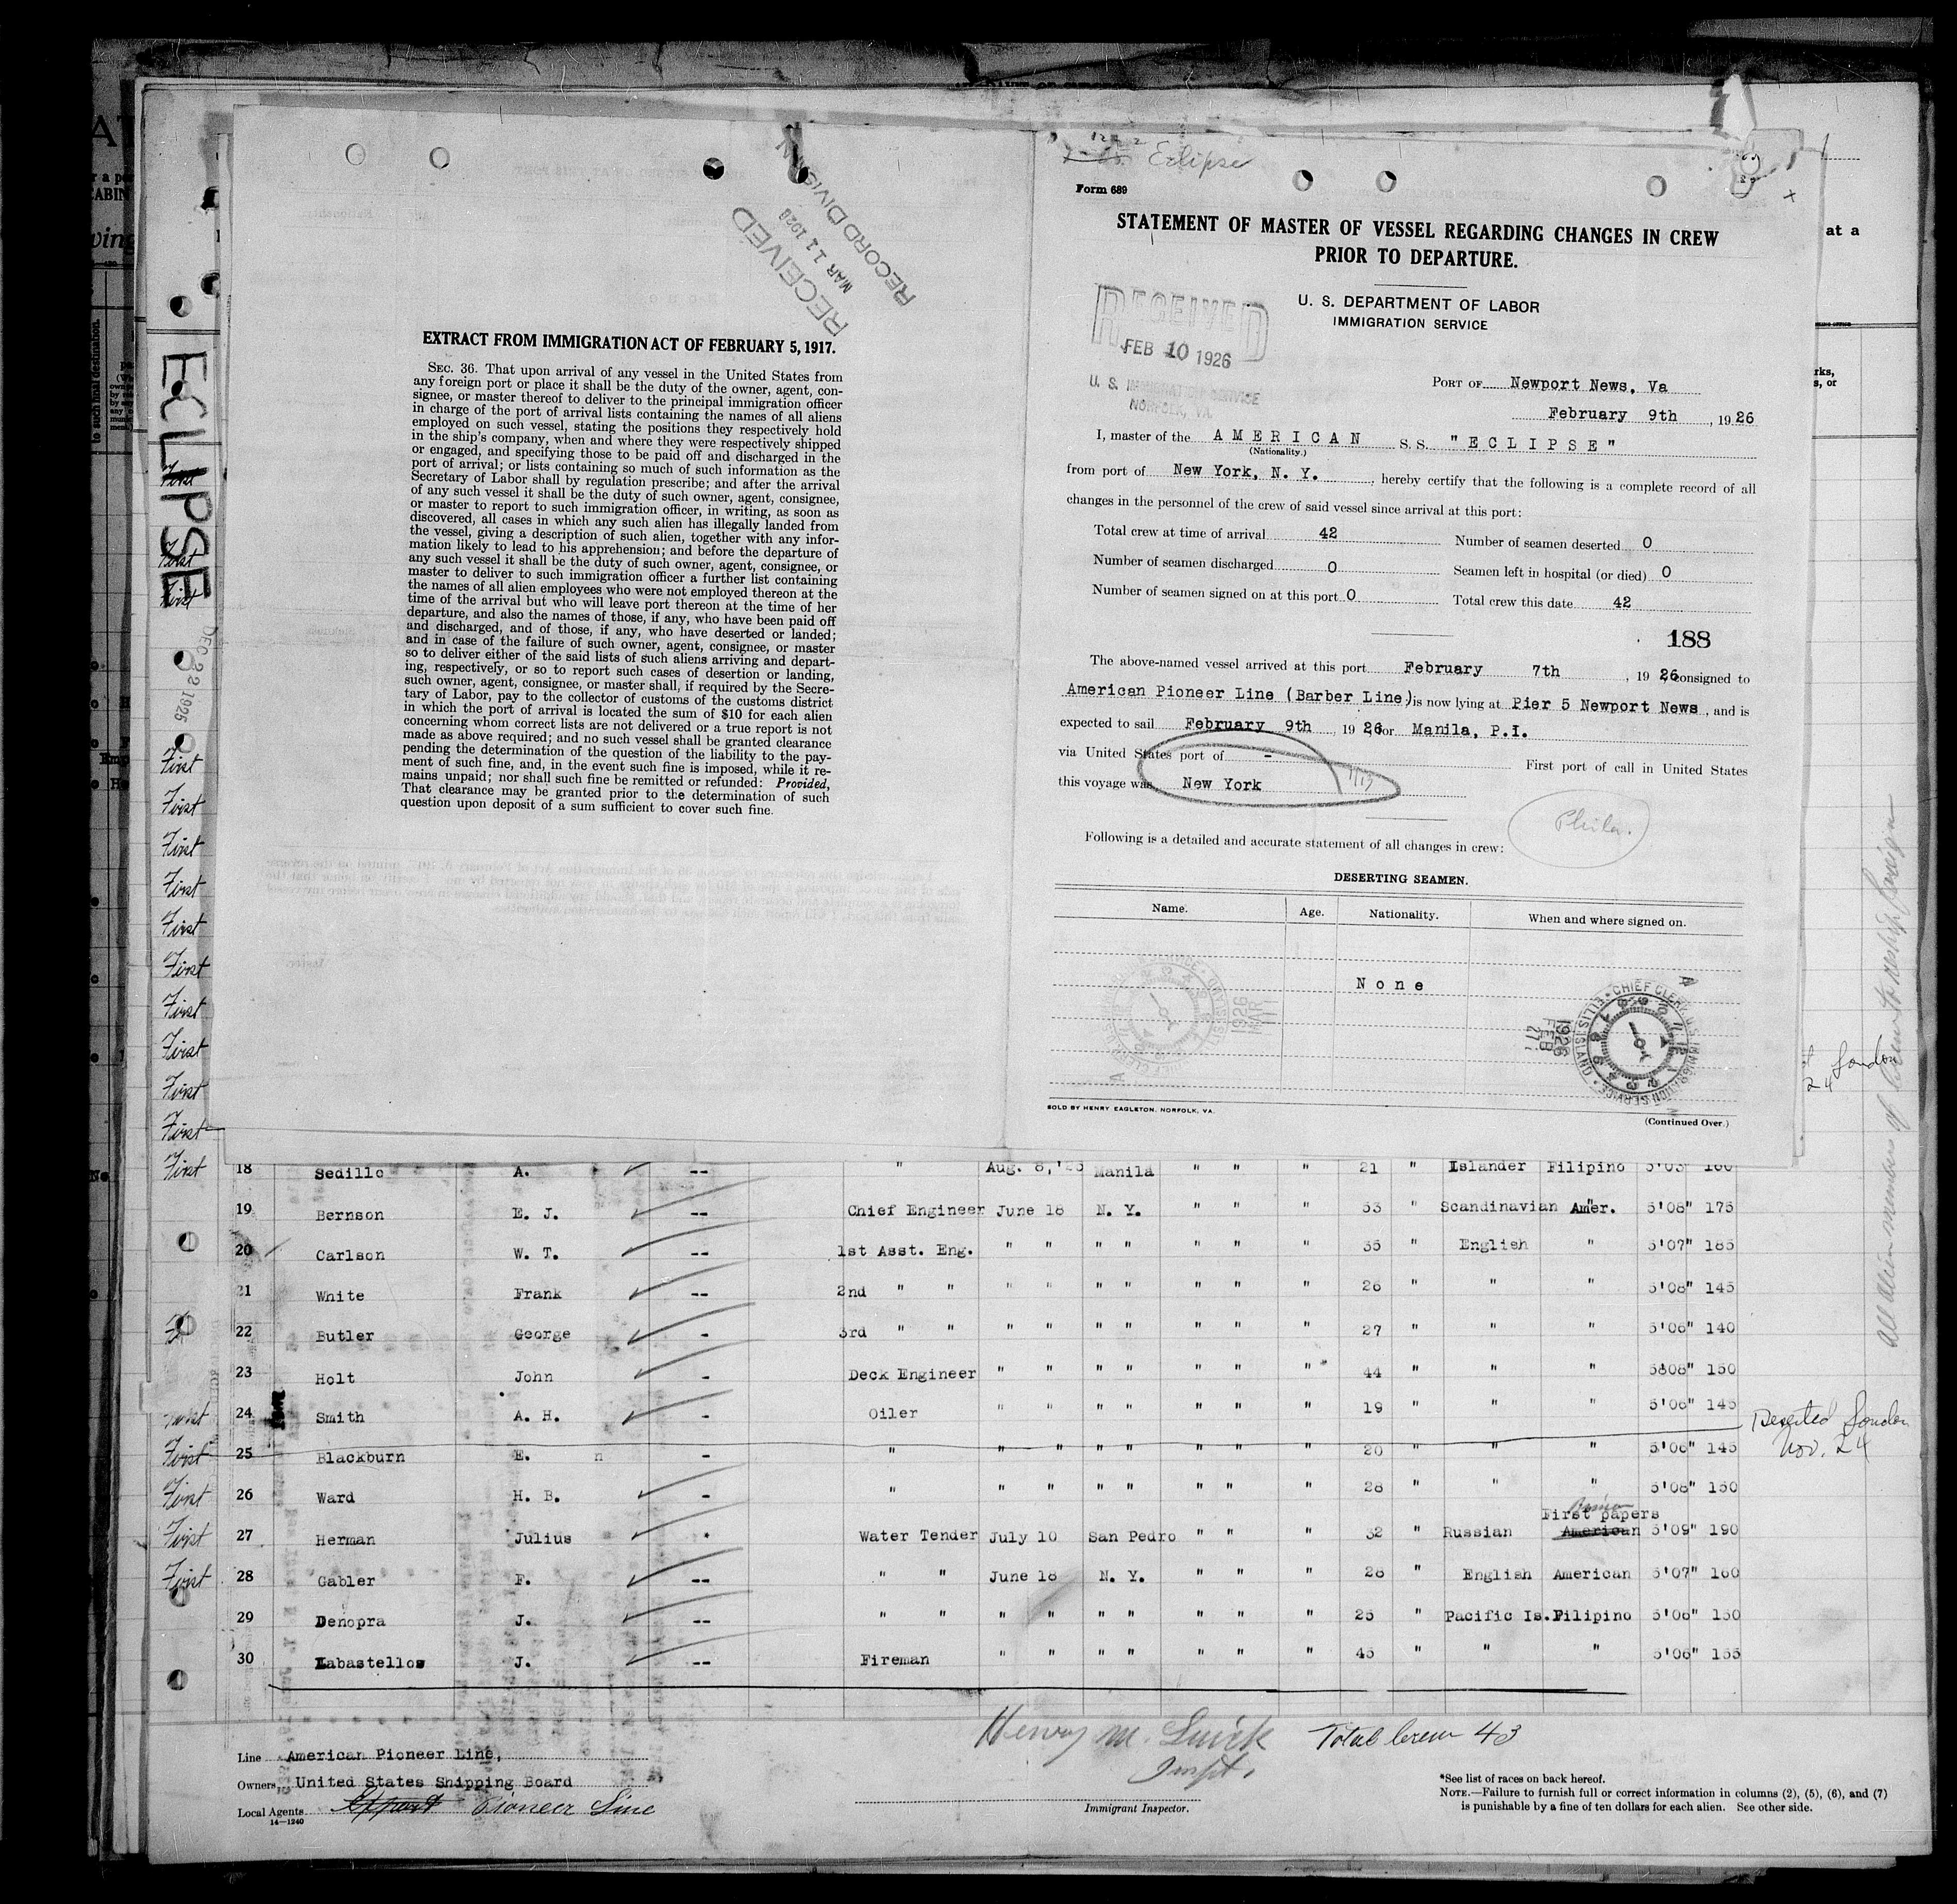 Eclipse
Form 689
STATEMENT OF MASTER OF VESSEL REGARDING CHANGES IN CREW
PRIOR TO DEPARTURE.
U. S. DEPARTMENT OF LABOR
IMMIGRATION SERVICE
RECEIVED
FEB 10 1926
U. S. IMMIGRATION SERVICE
NORFOLK, VA.
PORT OF Newport News, Va
February 9th, 1926
I, master of the AMERICAN S. S. "ECLIPSE"
(Nationality.)
from port of New York, N. Y., hereby certify that the following is a complete record of all
changes in the personnel of the crew of said vessel since arrival at this port:
Total crew at time of arrival 42 Number of seamen deserted 0
Number of seamen discharged 0 Seamen left in hospital (or died) 0
Number of seamen signed on at this port 0 Total crew this date 42
188
The above-named vessel arrived at this port February 7th, 1926 consigned to
American Pioneer Line (Barber Line) is now lying at Pier 5 Newport News, and is
expected to sail February 9th 1926 for Manila, P.I.
via United States port of - First port of call in United States
this voyage was New York
Phila.
Following is a detailed and accurate statement of all changes in crew:
DESERTING SEAMEN.
Name. Age. Nationality. When and where signed on.
None
CHIEF CLERK U.S. IMMIGRATION SERVICE ELLIS ISLAND
1926
FEB
27
1926
MAR
11
SOLD BY HENRY EAGLETON, NORFOLK, VA.
(Continued Over.)
RECEIVED
MAR 11 1926
RECORD DIVISION
EXTRACT FROM IMMIGRATION ACT OF FEBRUARY 5, 1917.
SEC. 36. That upon arrival of any vessel in the United States from
any foreign port or place it shall be the duty of the owner, agent, con-
signee, or master thereof to deliver to the principal immigration officer
in charge of the port of arrival lists containing the names of all aliens
employed on such vessel, stating the positions they respectively hold
in the ship's company, when and where they were respectively shipped
or engaged, and specifying those to be paid off and discharged in the
port of arrival; or lists containing so much of such information as the
Secretary of Labor shall by regulation prescribe; and after the arrival
of any such vessel it shall be the duty of such owner, agent, consignee,
or master to report to such immigration officer, in writing, as soon as
discovered, all cases in which any such alien has illegally landed from
the vessel, giving a description of such alien, together with any infor-
mation likely to lead to his apprehension; and before the departure of
any such vessel it shall be the duty of such owner, agent, consignee, or
master to deliver to such immigration officer a further list containing
the names of all alien employees who were not employed thereon at the
time of the arrival but who will leave port thereon at the time of her
departure, and also the names of those, if any, who have been paid off
and discharged, and of those, if any, who have deserted or landed;
and in case of the failure of such owner, agent, consignee, or master
so to deliver either of the said lists of such aliens arriving and depart-
ing, respectively, or so to report such cases of desertion or landing,
such owner, agent, consignee, or master shall, if required by the Secre-
tary of Labor, pay to the collector of customs of the customs district
in which the port of arrival is located the sum of $10 for each alien
concerning whom correct lists are not delivered or a true report is not
made as above required; and no such vessel shall be granted clearance
pending the determination of the question of the liability to the pay-
ment of such fine, and, in the event such fine is imposed, while it re-
mains unpaid; nor shall such fine be remitted or refunded: Provided,
That clearance may be granted prior to the determination of such
question upon deposit of a sum sufficient to cover such fine.
ECLIPSE
DEC 22 1925
First
First
First
First
First
First
First
First
First
First
First
First
First
First 18 Sedillo A. -- " Aug. 8,'25 Manila " " " 21 " Islander Filipino 5'03" 160
19 Bernson E. J. -- Chief Engineer June 18 N. Y. " " " 53 " Scandinavian Amer. 5'08" 175
20 Carlson W. T. -- 1st Asst. Eng. " " " " " " " 35 " English " 5'07" 185
21 White Frank -- 2nd " " " " " " " " " 26 " " " 5'08" 145
22 Butler George - 3rd " " " " " " " " " 27 " " " 5'06" 140
23 Holt John - Deck Engineer " " " " " " " 44 " " " 5'08" 150
24 Smith A. H. - Oiler " " " " " " " 19 " " " 5'06" 145
First 25 Blackburn E. n - " " " " " " " " 20 " " " 5'06" 145
Deserted London
Nov. 24
First 26 Ward H. B. - " " " " " " " " 28 " " " 5'08" 150
First papers
First 27 Herman Julius Water Tender July 10 San Pedro " " " 32 " Russian American 5'09" 190
First 28 Gabler F. -- " " June 18 N. Y. " " " 28 " English American 5'07" 160
29 Denopra J. -- " " " " " " " " " 25 " Pacific Is. Filipino 5'06" 150
30 Labastellos J. -- Fireman " " " " " " " 45 " " " 5'06" 155
London
24
All alien members of crew to reship foreign
Henry M. Total Crew 43
Inspt.
Immigrant Inspector.
Line American Pioneer Line,
Owners, United States Shipping Board
Local Agents Pioneer Line
14—1240
*See list of races on back hereof.
NOTE.—Failure to furnish full or correct information in columns (2), (5), (6), and (7)
is punishable by a fine of ten dollars for each alien. See other side.